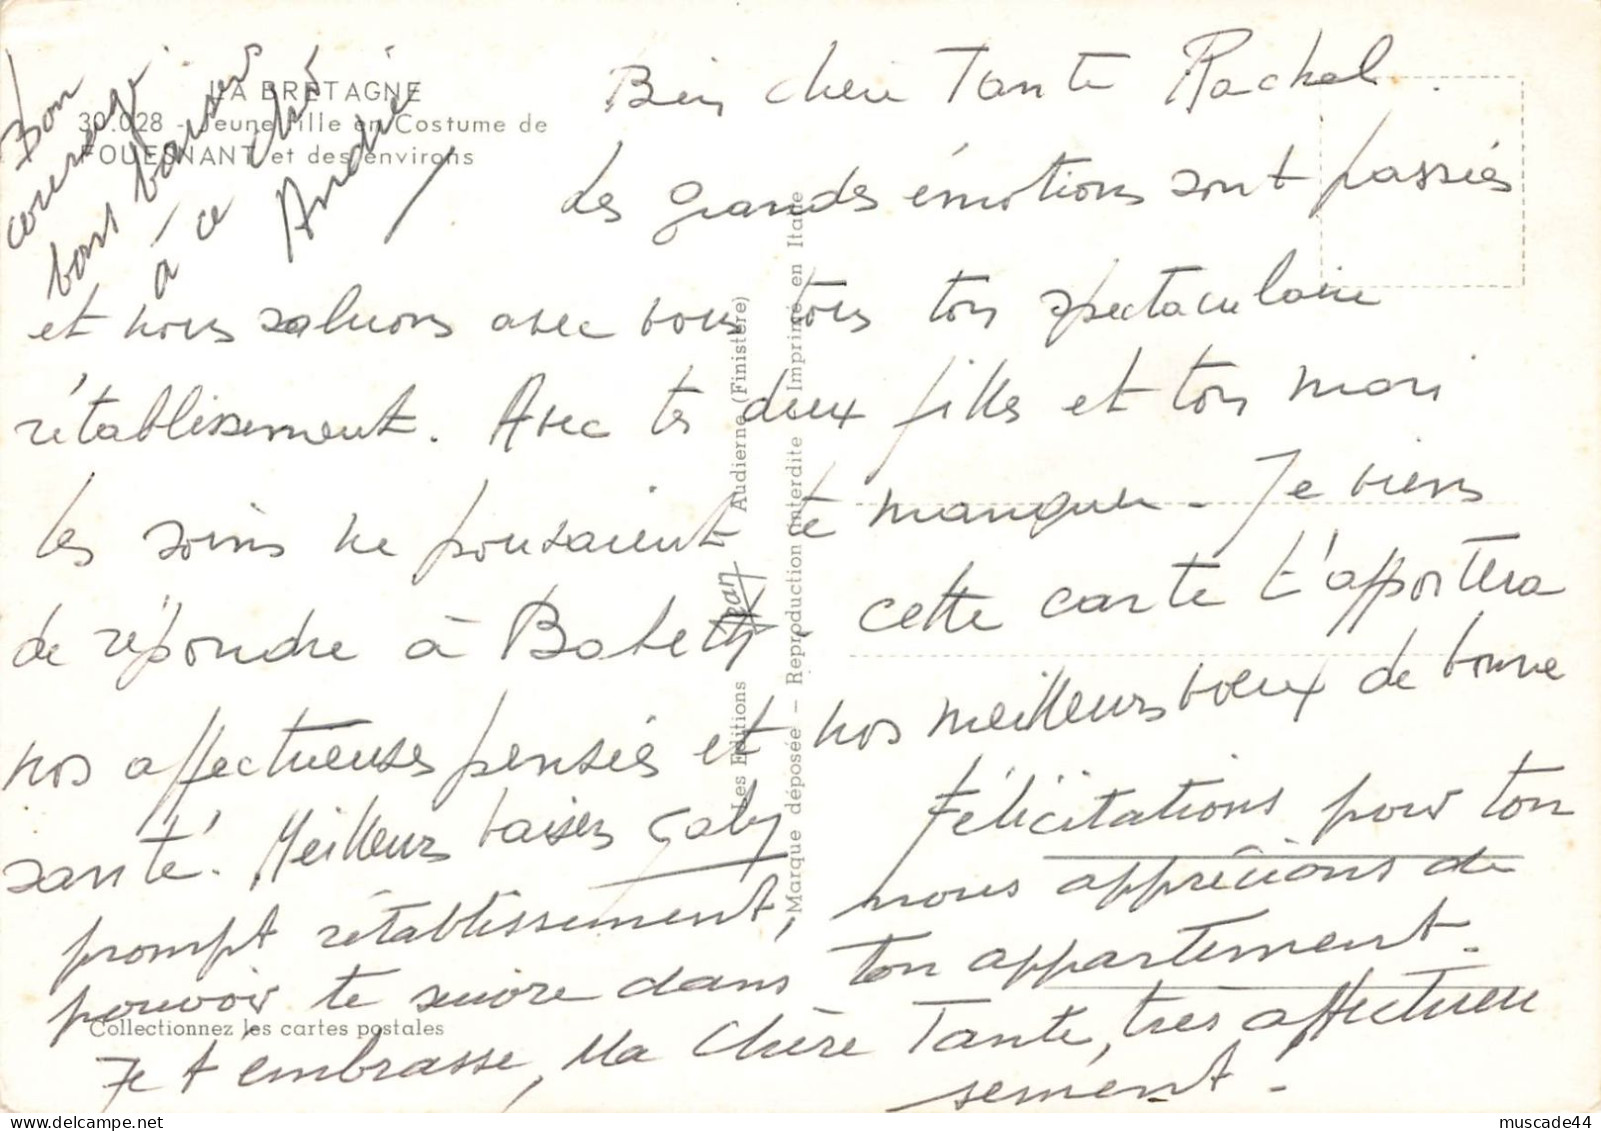 LA BRETAGNE
30.028 - Jeune fille en Costume de
FOUESNANT et des environs
Bien chère Tante Rachel.
Les grandes émotions sont passées
et nous saluons avec vous tous ton spectaculaire
rétablissement. Avec tes deux filles et ton mari
les soins ne pouvaient te manquer - Je viens
de répondre à Babeth - cette carte t'apportera
nos affectueuses pensées et nos meilleurs voeux de bonne
santé. Meilleurs baisers Gaby
Félicitations pour ton
prompt rétablissement, nous apprécions de
pouvoir te suivre dans ton appartement.
Je t embrasse, Ma Chère Tante, très affectueu
sement -
Bon
courage
bons baisers
à ce cher
André
Les Editions Jean Audierne (Finistère)
Marque déposée - Reproduction interdite Imprimé en Italie
Collectionnez les cartes postales
muscade44